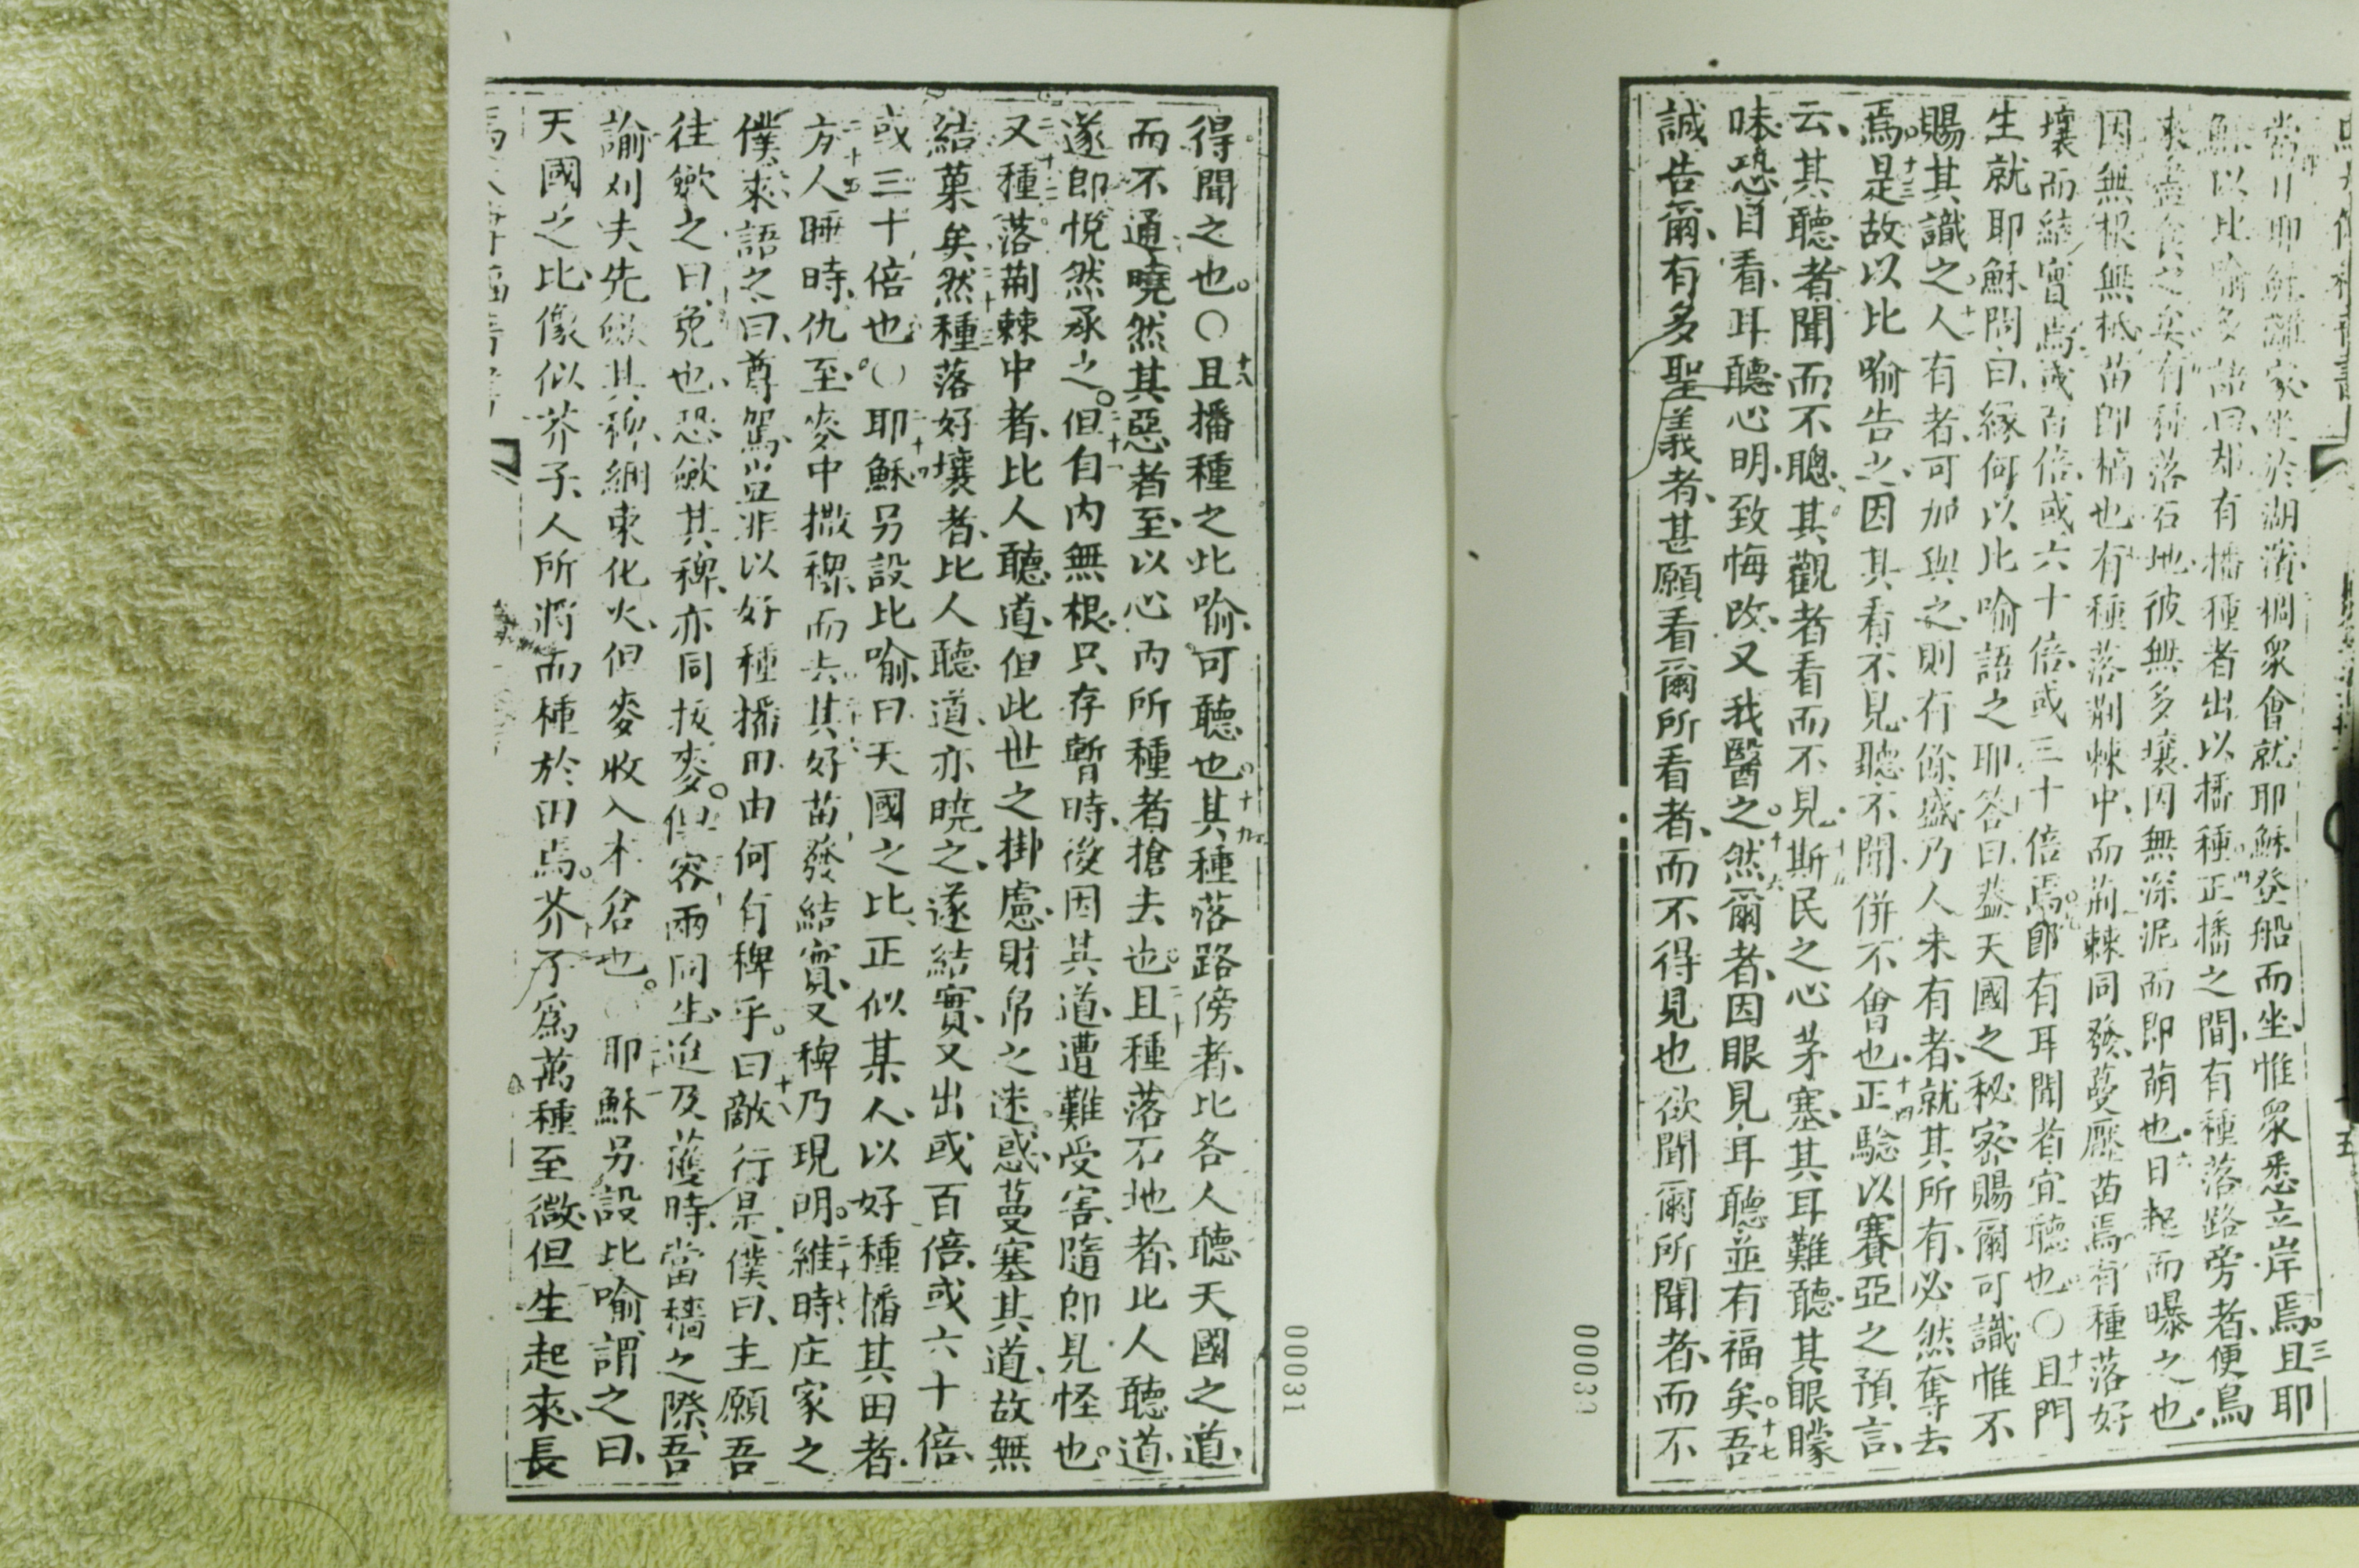 當日耶穌離家坐於湖濱稠眾會就耶穌登船而坐惟眾悉立岸焉三且耶
穌以比喻多語曰却有播種者出以播種正播之間有種落路旁者便鳥
來盡食之矣有種落石地彼無多壤因無深泥而即萌也日起而曝之也
因無根無柢苗即槁也有種落荊棘中而荊棘同發蔓壓苗焉有種落好
壤而結實焉或百倍或六十倍或三十倍焉九即有耳聞者宜聽也〇十且門
生就耶穌問曰緣何以比喻語之耶答曰葢天國之秘密賜爾可識惟不
賜其識之人十二有者可加與之則有餘盛乃人未有者就其所有必然奪去
焉十三是故以比喻告之因其看不見聽不聞併不會也十四正騐以賽亞之預言
云其聽者聞而不聰其觀者看而不見十五斯民之心茅塞其耳難聽其眼矇
昧恐目看耳聽心明致悔改又我醫之十六然爾者因眼見耳聽並有福矣十七吾
誠告爾有多聖義者甚願看爾所看者而不得見也欲聞爾所聞者而不
00033
00031
得聞之也〇十八且播種之比喻可聽也十九其種落路傍者比各人聽天國之道
而不通曉然其惡者至以心內所種者搶去也二十且種落石地者比人聽道
遂即悅然承之二十一但自內無根只存暫時後因其道遭難受害隨即見怪也
二十二又種落荊棘中者比人聽道但此世之掛慮財帛之迷惑蔓塞其道故無
結菓矣二十三然種落好壤者比人聽道亦曉之遂結實又出或百倍或六十倍
或三十倍也〇二十四耶穌另設比喻曰天國之比正似某人以好種播其田者
二十五方人睡時仇至麥中撒稗而去其好苗發結實又稗乃現明二十七維時庄家之
僕來語之曰尊駕豈非以好種播田由何有稗乎曰敵行是僕曰主願吾
往歛之曰免也恐歛其稗亦同拔麥但容兩同生迨及穫時當穡之際吾
諭刈夫先歛其稗綑束化火但麥收入本倉也〇耶穌另設比喻謂之曰
天國之比像似芥子人所將而種於田焉芥子為萬種至微但生起來長